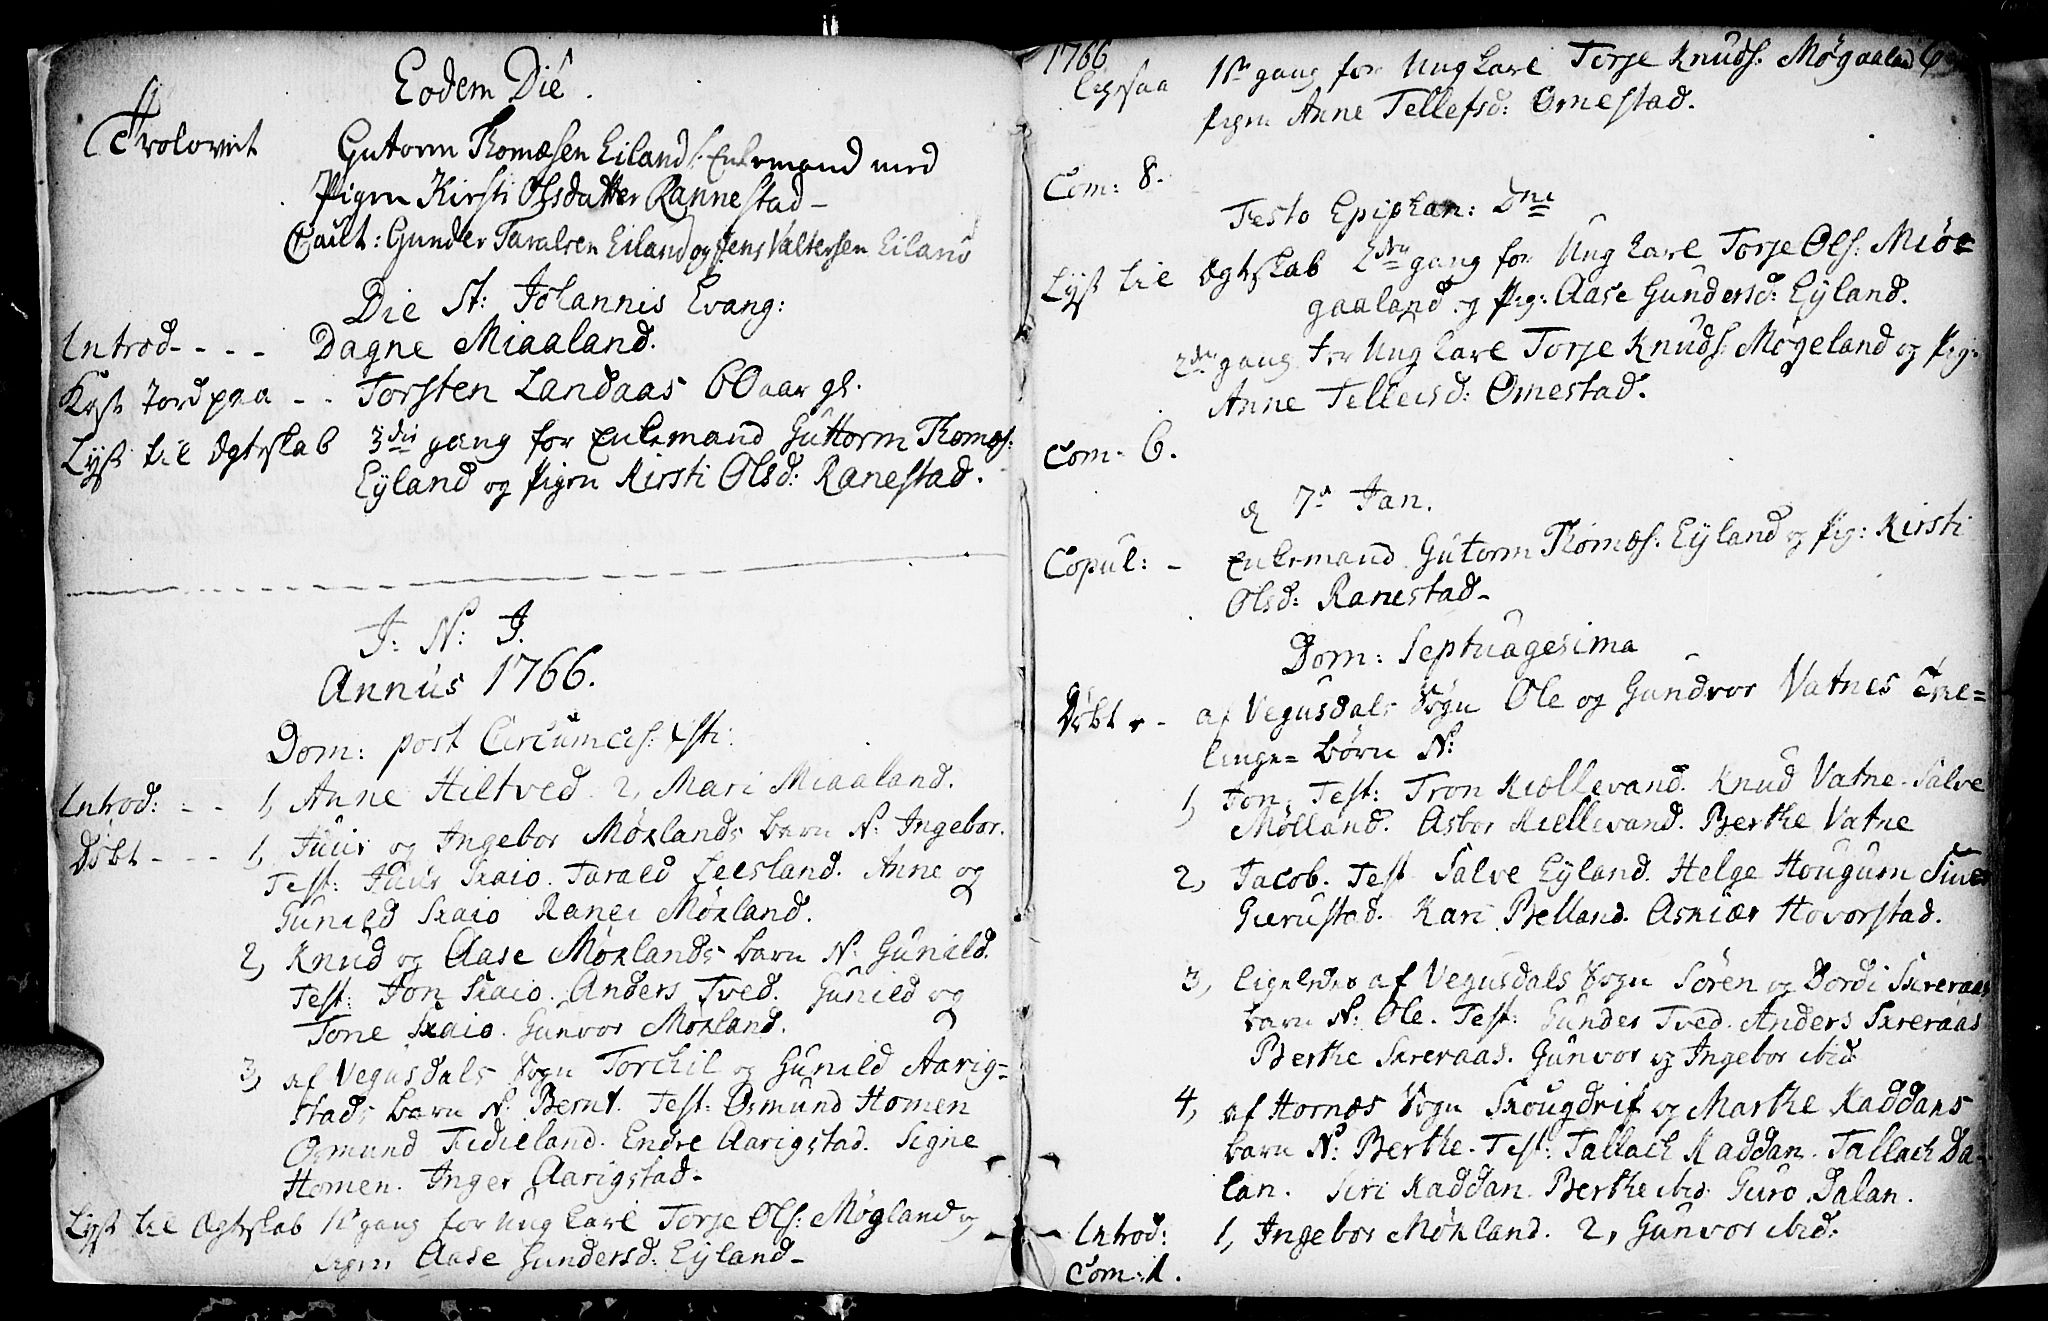 Eodem Die.
Trolovet Gutorm Thomæsen Eiland: Enkemand med
Pigen Kirsti Olsdatter Rannestad-
Caut: Gunder Taralsen Eiland og Jens Valtersen Eiland
Die St: Johannis Evang:
Introd- - - - Dagne Miaaland.
Kast Jord paa - - Torsten Landaas 60 aar gl.
Lyst til Ægteskab 3die gang for Enkemand Guttorm Thomæs:
Eyland og Pigen Kirsti Olsd: Ranestad.
J: N: J.
Annus 1766.
Dom: post Circumcis: Xsti.
Introd: - - 1, Anne Hiltved. 2, Mari Miaaland.
Døbt - - - 1, Juur og Ingebor Møklands barn N: Ingebor.
Test: Juur Skaio. Tarald Leesland. Anne og
Gunild Skaio Ranei Møkland.
2, Knud og Aase Møklands barn N: Gunild.
Test: Jon Skaio. Anders Tved. Gunild og
Tone Skaio. Gunvor Møkland.
3, af Vegusdals Sogn Torchil og Gunild Aarig-
stads barn N: Bernt. Test: Osmund Homen
Osmund Fidieland. Endre Aarigstad. Signe
Homen. Inger Aarigstad-
Lyst til Ægteskab 1ste gang for Ung Karl Torje Ols: Møgland og
Pigen Aase Gundersd: Eyland-
1766
Ligesaa 1ste gang for Ung Karl Torje Knuds: Møgaaland og
Pigen Anne Tellefsd: Omestad.
Com: 8.
Festo Epiphan: Dni
Lyst til Ægteskab 2den gang for Ung Karl Torje Ols: Miøe
gaaland og Pig: Aase Gundersd: Eyland.
2den gang for Ung Karl Torje Knuds: Møgeland og Pig:
Anne Tellefsd: Omestad.
Com- 6.
d 7de Jan.
Copul: - Enkemand Gutorm Thomæs. Eyland og Pig: Kirsti
Olsd: Ranestad-
Dom: Septuagesima
Døbt - af Vegusdals Sogn Ole og Gundvor Vatnes Tvil=
linge= børn N:
1, Jon. Test: Tron Kiellevand. Knud Vatne. Salve
Mølland. Asbor Kiellevand. Berthe Vatne
2, Jacob. Test Salve Eyland. Helge Hougum
Gierustad. Kari Belland. Askier Hovorstad.
3, ligeledes af Vegusdals Sogn Søren og Dordi Skreraas
barn N: Ole. Test: Gunder Tved. Anders Skreraas
Berthe Skreraas. Gunvor og Ingebor ibid.
4, af Hornæs Sogn Skougdrif og Marthe Kaddans
barn N: Berthe. Test: Tallach Kaddan. Tallach Da-
lan. Siri Kaddan. Berthe ibid: Guro Dalan.
Introd: 1, Ingebor Møkland. 2, Gunvor ibid:
Com: 1.